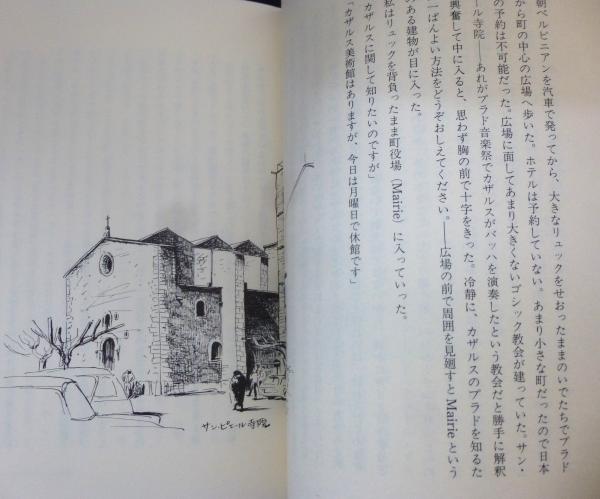 朝ペルピニアンを汽車で発ってから、大きなリュックをせおったままのいでたちでプラド
から町の中心の広場へ歩いた。ホテルは予約していない。あまり小さな町だったので日本
の予約は不可能だった。広場に面してあまり大きくないゴシック教会が建っていた。サン・
ール寺院――あれがプラド音楽祭でカザルスがバッハを演奏したという教会だと勝手に解釈
興奮して中に入ると、思わず胸の前で十字をきった。冷静に、カザルスのプラドを知るた
一ばんよい方法をどうぞおしえてください。――広場の前で周囲を見廻すとMairieという
のある建物が目に入った。
私はリュックを背負ったまま町役場（Mairie）に入っていった。
カザルスに関して知りたいのですが」
「カザルス美術館はありますが、今日は月曜日で休館です」
サン・ピエール寺院